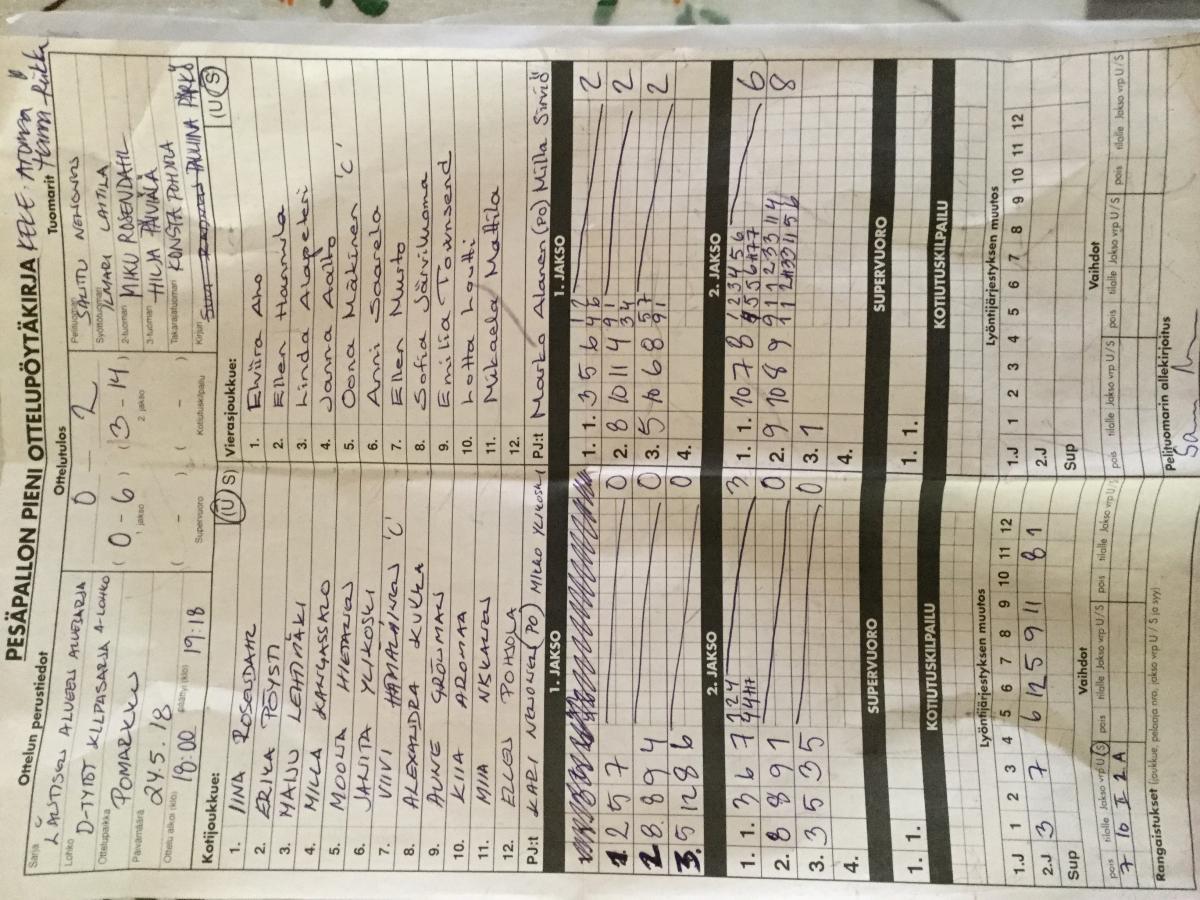 PESÄPALLON PIENI OTTELUPÖYTÄKIRJA
Ottelun perustiedot
Ottelutulos
Tuomarit
Sarja
LÄNTISEN ALUEEN ALUESARJA
Lohko
D-TYTÖT KILPASARJA A-LOHKO
Ottelupaikka
POMARKKU
Päivämäärä
24.5.18
Ottelu alkoi (klo)
18:00
19:18
0 - 2
(0 - 6) (3 - 14)
1. jakso
2. jakso
( - ) ( - )
Supervuoro
Kotiutuskilpailu
Pelituomari
Syöttötuomari
ILMARI LAITILA
2-tuomari
MIKU ROSENDAHL
3-tuomari
HILJA PÄIVIÄLÄ
Takarajatuomari
KONSTA POHJOLA
Kirjuri
PAULIINA
Kotijoukkue:
(U S)
1. IINA ROSENDAHL
2. ERIKA PÖYSTI
3. MAIJU LEHTIMÄKI
4. MILLA KANGASSALO
5. MOONA HIETANEN
6. JANITA YLIKOSKI
7. VIIVI HÄMÄLÄINEN 'C'
8. ALEXANDRA KULKA
9. AUNE GRÖNMAN
10. KIIA AROMAA
11. MIIA NIKKANEN
12. ELLEN POHJOLA
PJ:t KARI NENONEN (PO) MIKKO YLIKOSKI
Vierasjoukkue:
(U S)
1. Elviira Aho
2. Ellen Hannula
3. Linda Alapeteri
4. Janna Aalto
5. Oona Mäkinen 'C'
6. Anni Saarela
7. Ellen Muurto
8. Sofia Järvikuona
9. Emilia Townsend
10. Lotta Loutti
11. Mikaela Mattila
12.
PJ:t Marko Alanen (PO) Milla Sirviö
1. JAKSO
1. 2 5 7 0
2. 8 8 9 4 0
3. 5 12 8 6 0
1. JAKSO
1. 1. 3 5 6 2
2. 8 10 11 4 2
3. 5 10 6 8 2
4.
2. JAKSO
1. 1. 3 6 7 3
2. 8 8 9 1 0
3. 3 5 3 5 0
4.
2. JAKSO
1. 1. 10 7 8 6
2. 9 10 8 9 8
3. 1
4.
SUPERVUORO
1. 1.
SUPERVUORO
1. 1.
KOTIUTUSKILPAILU
KOTIUTUSKILPAILU
Lyöntijärjestyksen muutos
1.J 1 2 3 4 5 6 7 8 9 10 11 12
2.J 3 7 6 12 5 9 11 8 1
Sup
Lyöntijärjestyksen muutos
1.J 1 2 3 4 5 6 7 8 9 10 11 12
2.J
Sup
Vaihdot
pois tilalle Jakso vrp U/S pois tilalle Jakso vrp U/S pois tilalle Jakso vrp U/S
7 10 II 2 A
Vaihdot
pois tilalle Jakso vrp U/S pois tilalle Jakso vrp U/S pois tilalle Jakso vrp U/S
Rangaistukset (joukkue, pelaaja nro, jakso vrp, U / S ja syy)
Pelituomarin allekirjoitus